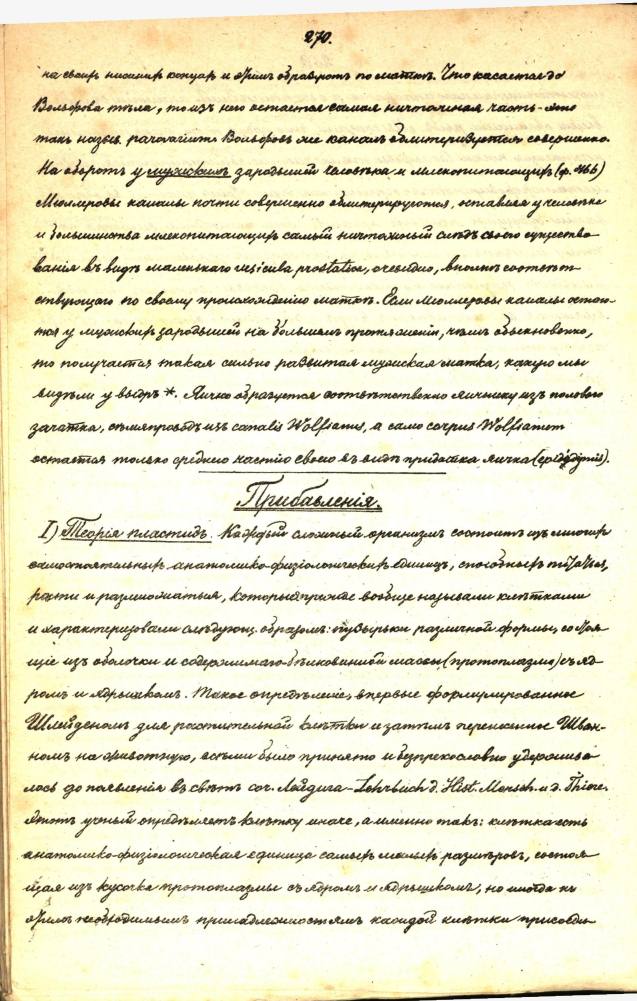 270.
на своихъ нижнихъ концахъ и этимъ образуютъ по маткѣ. Что касается до
Вольфова тѣла, то изъ него остается самая ничтожная часть - это
такъ назыв. parovarium. Вольфовъ же каналъ облитерируется совершенно.
На оборотъ у мужскихъ зародышей человѣка и млекопитающихъ (ф. 466)
Мюллеровы каналы почти совершенно облитерируются, оставляя у человѣка
и большинства млекопитающихъ самый ничтожный слѣдъ своего существо
ванія въ видѣ маленькаго vesicula prostatica, очевидно, вполнѣ соотвѣт
ствующаго по своему происхожденію маткѣ. Если Мюллеровы каналы остаю
тся у мужскихъ зародышей на большемъ протяженіи, чѣмъ обыкновенно,
то получается такая сильно развитая мужская матка, какую мы
видѣли у выдръ *. Яичко образуется соотвѣтственно яичнику изъ полового
зачатка, сѣмяпроводъ изъ canalis Wolfianus, а само corpus Wolfianum
остается только среднею частію своею въ видѣ придатка яичка (epididymis).
Прибавленія.
I) Теорія пластидъ. Каждый сложный организмъ состоитъ изъ многихъ
самостоятельныхъ анатомико-физіологическихъ единицъ, способныхъ питаться,
рости и размножаться, которыя прежде вообще называли клѣтками
и характеризовали слѣдующ. образомъ: пузырьки различной формы, состоя
щіе изъ оболочки и содержимаго-бѣлковинной массы (протоплазмы) съ яд
ромъ и ядрышкомъ. Такое опредѣленіе, впервые формулированное
Шлейденомъ для растительной клѣтки и затѣмъ перенесенное Шван-
номъ на животную, всѣми было принято и безпрекословно удержива
лось до появленія въ свѣтъ соч. Лейдига - Lehrbuch d. Hist. Mensch. u. d. Thiere.
Этотъ ученый опредѣляетъ клѣтку иначе, а именно такъ: клѣтка есть
анатомико-физіологическая единица самыхъ малыхъ размѣровъ, состоя
щая изъ кусочка протоплазмы съ ядромъ и ядрышкомъ, но иногда къ
этимъ необходимымъ принадлежностямъ каждой клѣтки присоеди-